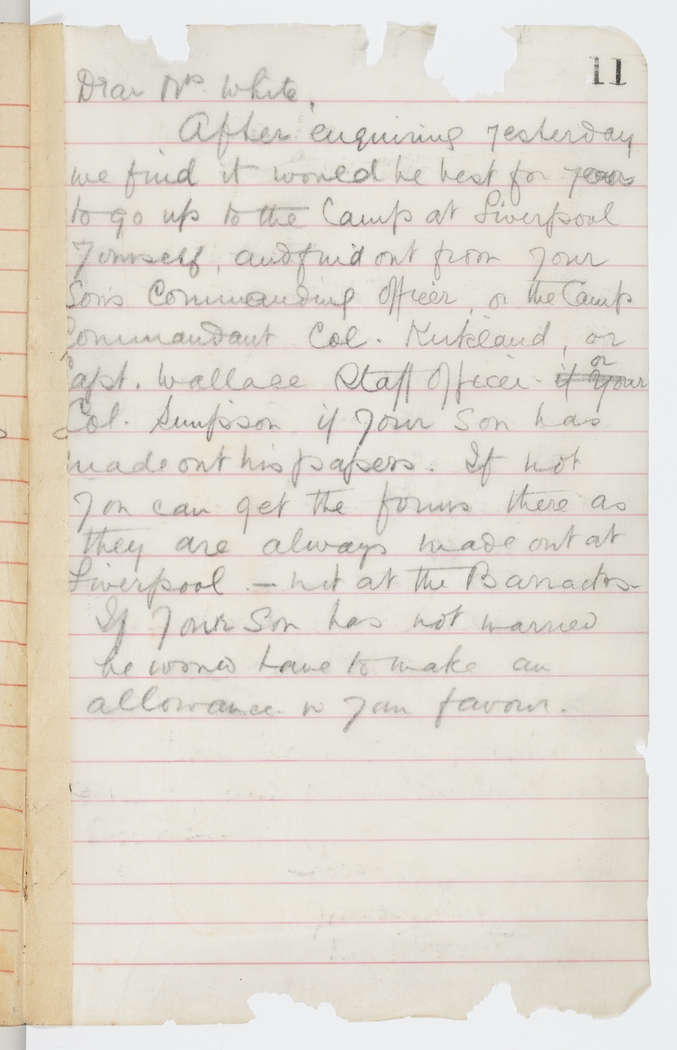 11
Dear Mrs White,
After enquiring yesterday
we find it would be best for you
to go up to the Camp at Liverpool
yourself, and find out from your
Sons Commanding Officer, or the Camp
Commandant Col. Kirkland, or
Capt. Wallace Staff Officer. if your or
Col. Simpson if your Son has
made out his papers. If not
you can get the forms there as
they are always made out at
Liverpool – not at the Barracks.
If your Son has not married
he would have to make an
allowance in your favour.